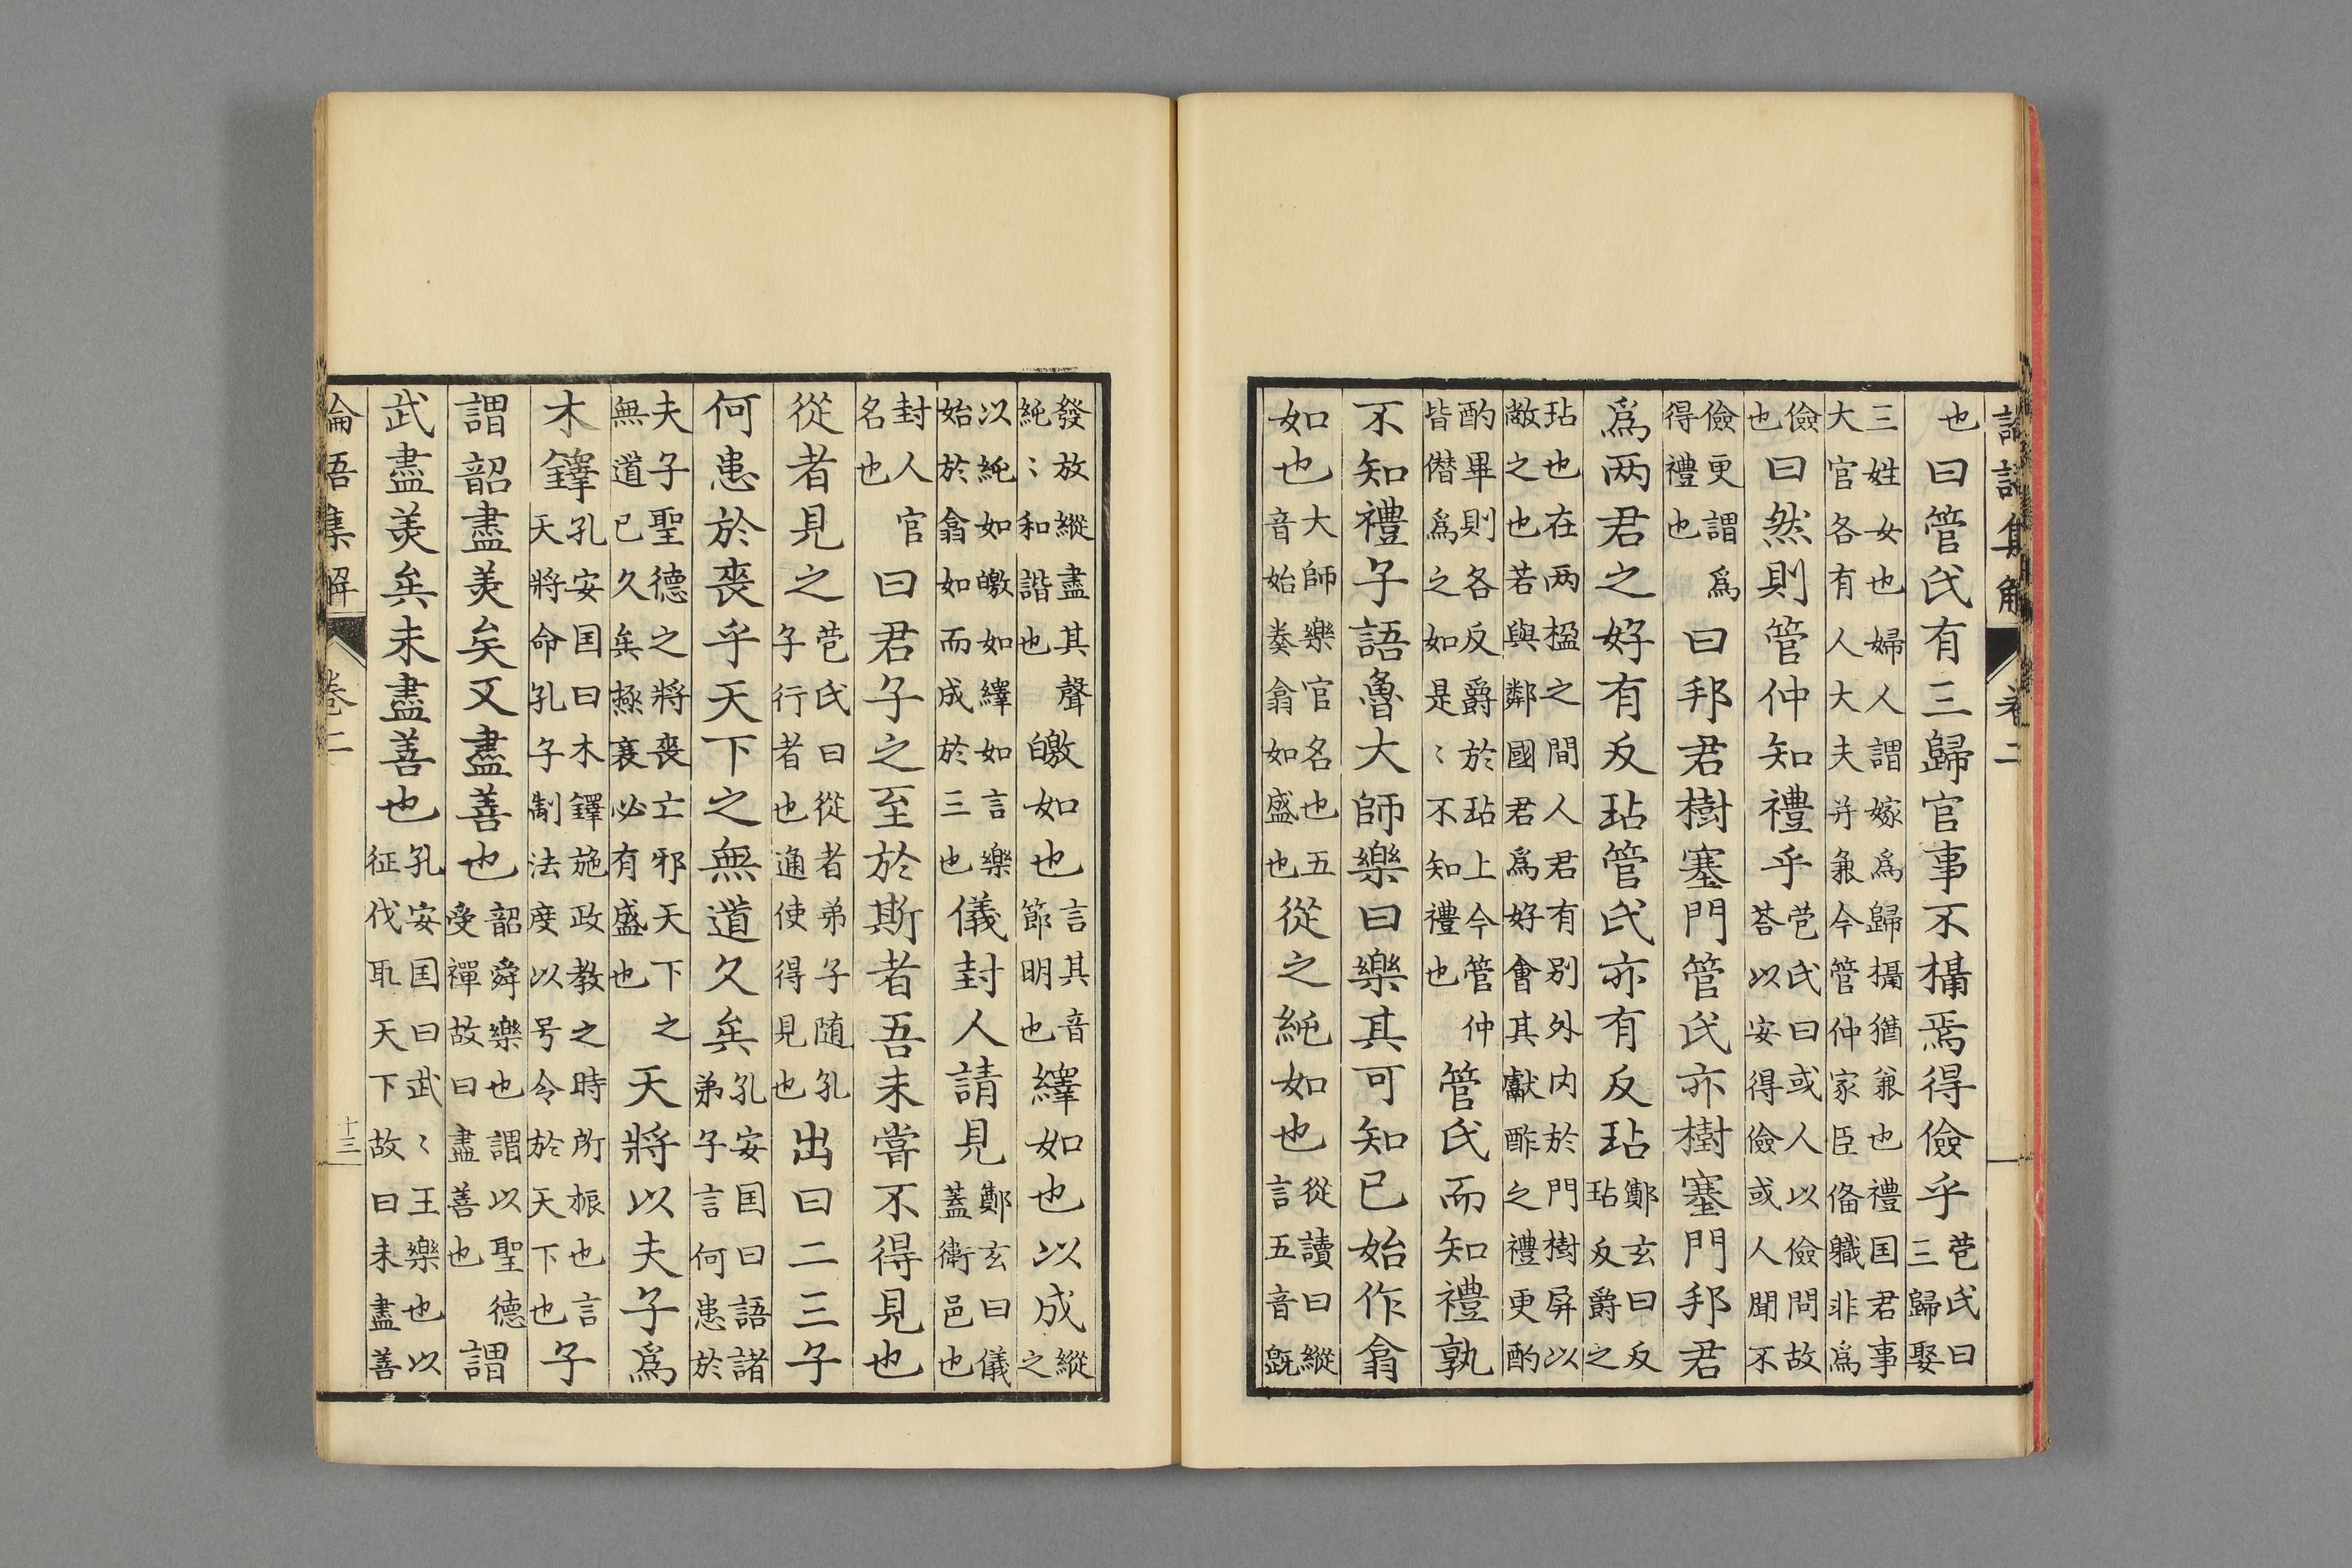 論語集解 卷二
也曰管氏有三歸官事不攝焉得儉乎苞氏曰三歸娶
三姓女也婦人謂嫁爲歸攝猶兼也禮囯君事大官各有人大夫并兼今管仲家臣俻軄非爲
儉也曰然則管仲知禮乎苞氏曰或人以儉問故荅以安得儉或人聞不
儉更謂爲得禮也曰邦君樹塞門管氏亦樹塞門邦君
爲两君之好有反坫管氏亦有反坫鄭玄曰反坫反爵之
坫也在两楹之間人君有別外内於門樹屏以敵之也若與鄰國君爲好會其獻酢之禮更酌
酌畢則各反爵於坫上今管仲皆僣爲之如是〻不知禮也管氏而知禮孰
不知禮子語魯大師樂曰樂其可知已始作翕
如也大師樂官名也五音始奏翕如盛也從之純如也從讀曰縱言五音旣
發放縱盡其聲純〻和諧也皦如也言其音節明也繹如也以成縱之
以純如皦如繹如言樂始於翕如而成於三也儀封人請見鄭玄曰儀蓋衛邑也
封人官名也曰君子之至於斯者吾未嘗不得見也
從者見之苞氏曰從者弟子随孔子行者也通使得見也出曰二三子
何患於喪乎天下之無道久矣孔安囯曰語諸弟子言何患於
夫子聖德之將喪亡邪天下之無道已久矣極衰必有盛也天將以夫子爲
木鐸孔安囯曰木鐸施政教之時所振也言天將命孔子制法度以号令於天下也子
謂韶盡美矣又盡善也韶舜樂也謂以聖德受禪故曰盡善也謂
武盡美矣未盡善也孔安囯曰武〻王樂也以征伐取天下故曰未盡善
論語集解 卷二 十三